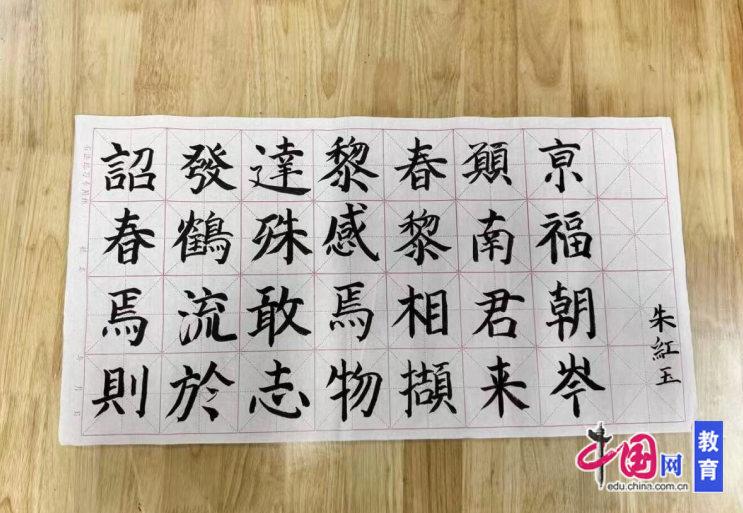 詔發達黎春願亰
春鶴殊感黎南福
焉流敢焉相君朝
則於志物擷来岑
朱紅玉
中国网
教育
edu.china.com.cn